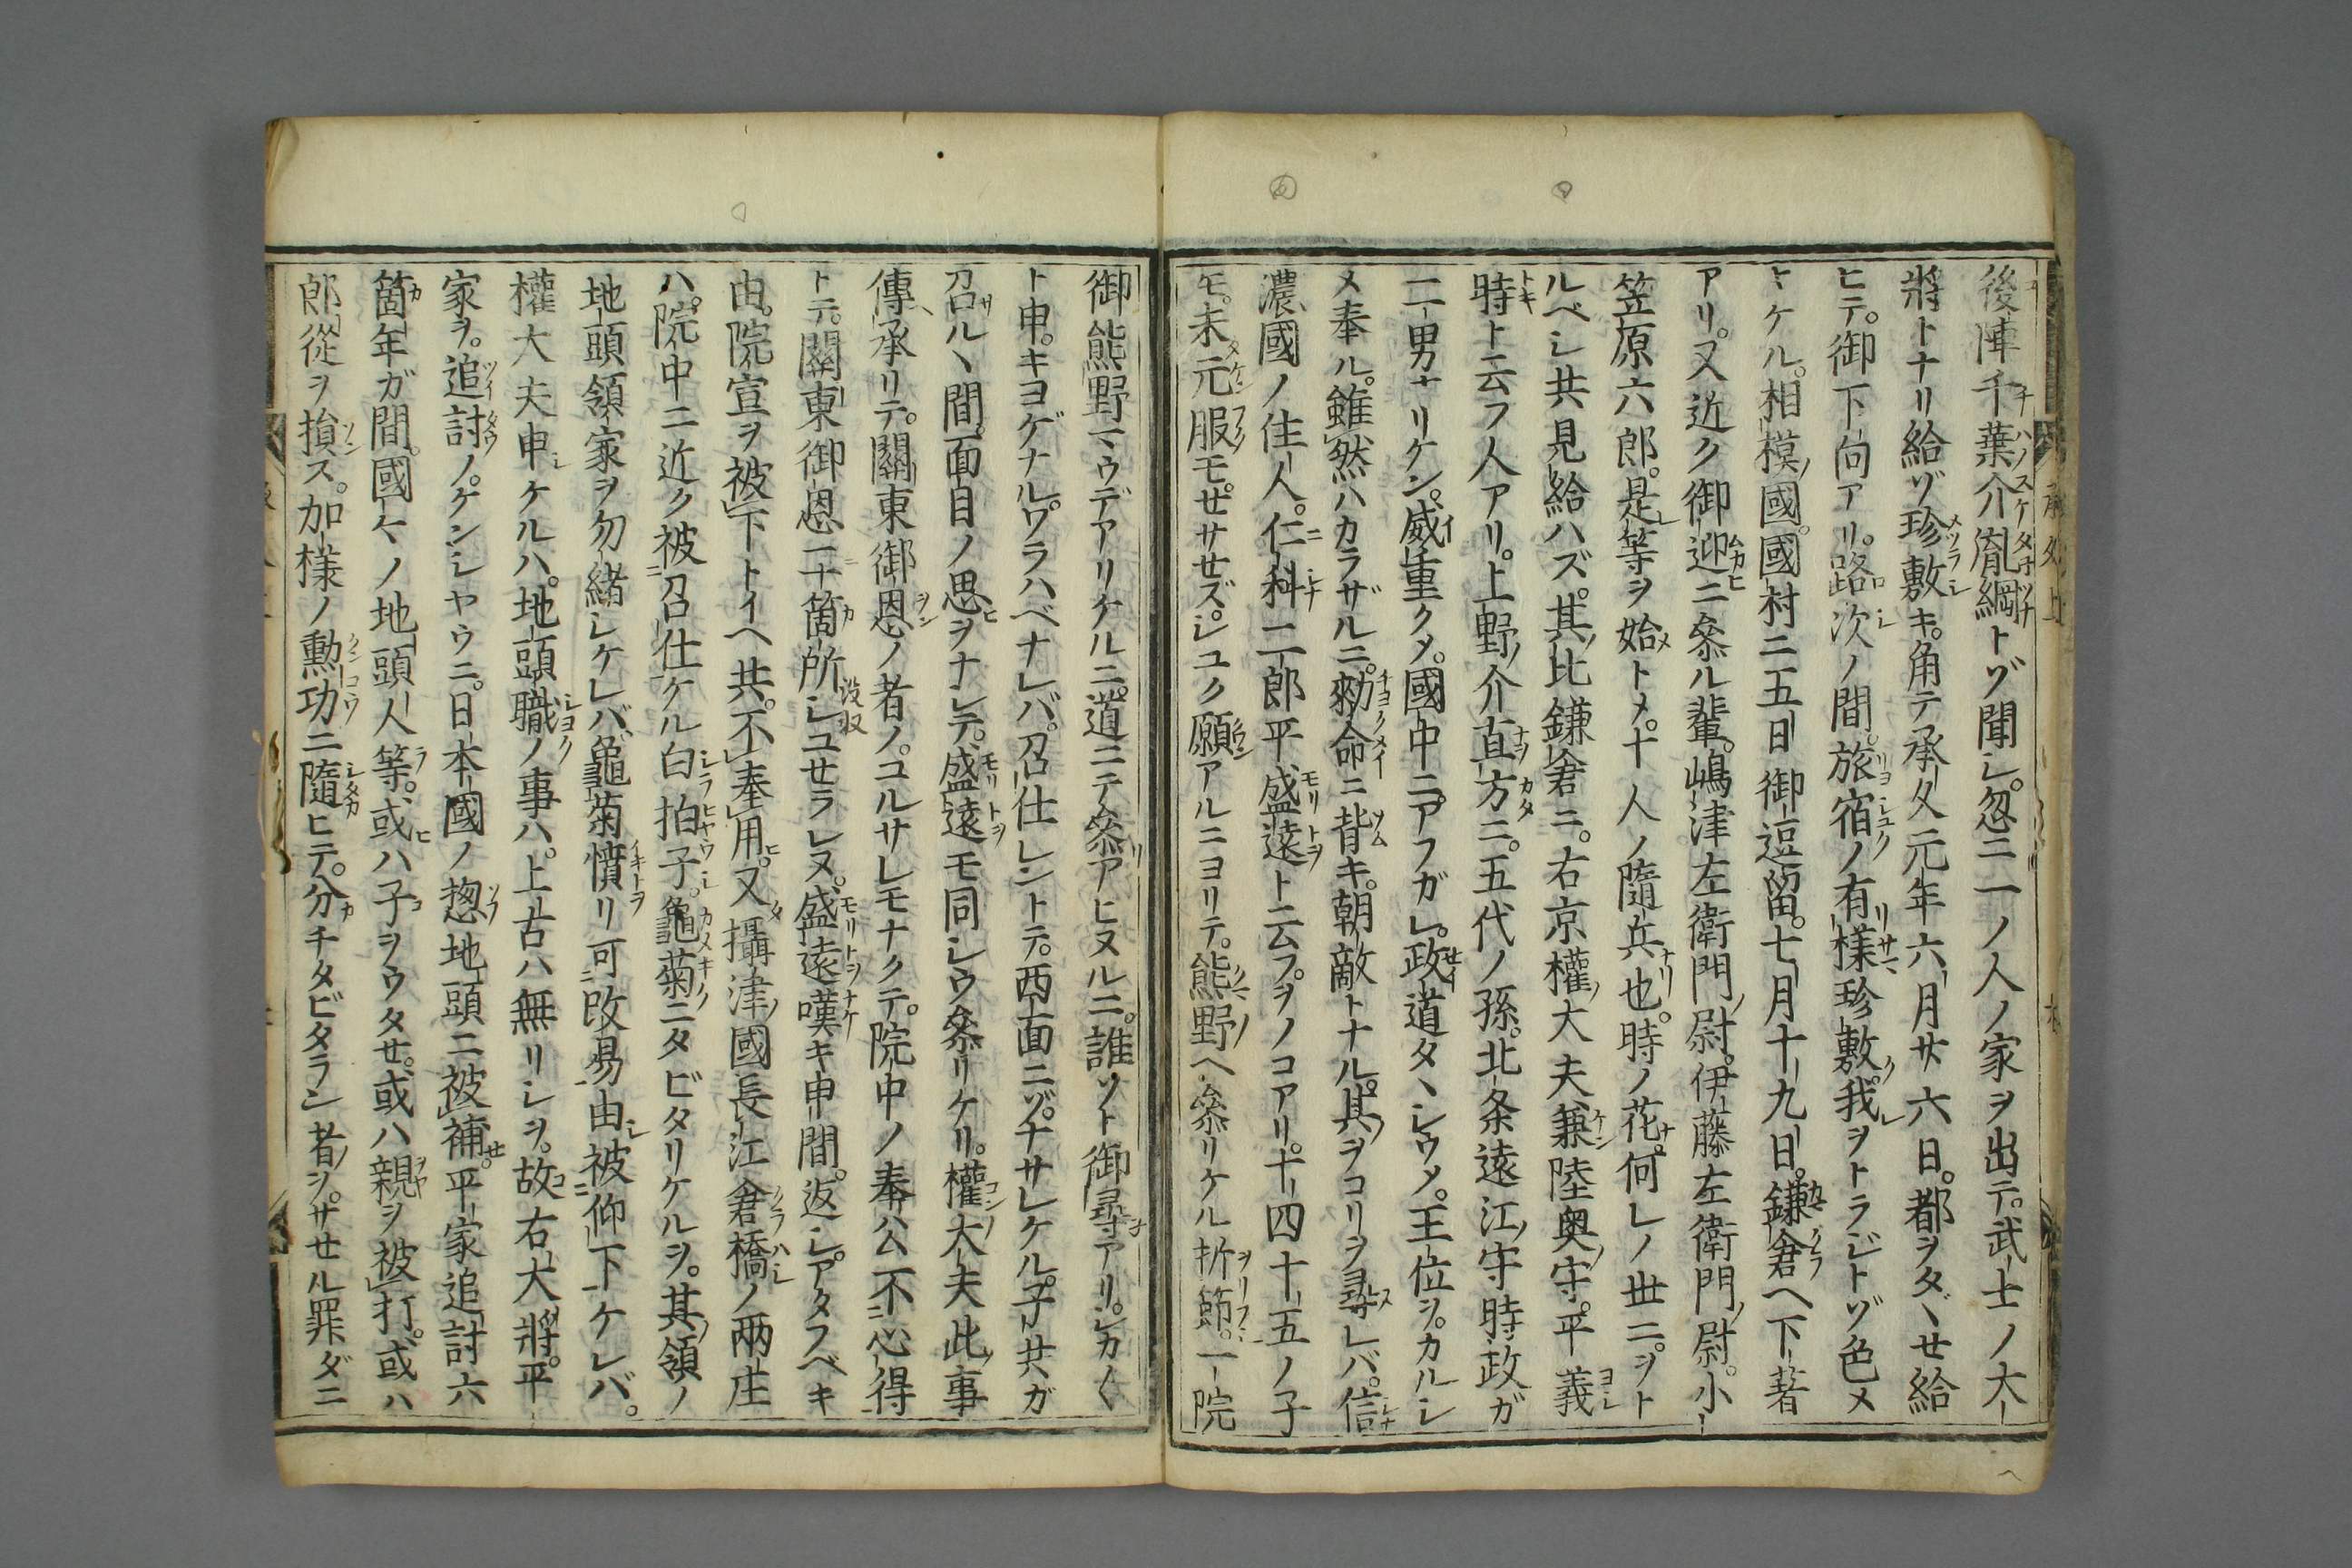 後陣千葉介胤綱トゾ聞シ。忽ニ一ノ人ノ家ヲ出テ。武士ノ大
將トナリ給ゾ珍敷キ。角テ承久元年六月廿六日。都ヲタヽせ給
ヒテ。御下向アリ。路次ノ間。旅宿ノ有様珍敷。我ヲトラジトゾ色メ
キケル。相模國。國村ニ五日御逗留。七月十九日。鎌倉ヘ下著
アリ。又近ク御迎ニ叅ル輩。嶋津左衛門尉。伊藤左衛門尉。小
笠原六郎。是等ヲ始トメ。十人ノ隨兵也。時ノ花。何レノ丗ニ。ヲト
ルベシ共見給ハズ。其比鎌倉ニ。右京權大夫。兼陸奥守。平義
時ト云フ人アリ。上野介直方ニ。五代ノ孫。北条遠江守時政ガ
二男ナリケン。威重クメ。國中ニアフガレ。政道タヽシウメ。王位ヲ。カルシ
メ奉ル。雖然ハカラザルニ。勅命ニ背キ。朝敵トナル。其ヲコリヲ尋レバ。信
濃國ノ住人。仁科二郎平盛遠ト云フ。ヲノコアリ。十四十五ノ子
モ。未元服モ。せサせズ。シユク願アルニヨリテ。熊野ヘ叅リケル折節。一院
御熊野マウデアリケルニ。道ニテ叅アヒヌルニ。誰ソト御尋アリ。シカ〱
ト申。キヨゲナル。ワラハベナレバ。召仕レントテ。西面ニゾ。ナサレケル。子共ガ
召ルヽ間。面目ノ思ヲナシテ。盛遠モ同シウ叅リケリ。權大夫此事
傳承リテ。關東御恩ノ者ノ。ユルサレモナクテ。院中ノ奉公不心得
トテ。關東御恩二十箇所シユせラレヌ。盛遠嘆キ申間。返シアタフベキ
由。院宣ヲ被下トイヘ共。不奉用。又攝津國長江倉橋ノ兩庄
ハ。院中ニ近ク被召仕ケル白拍子。龜菊ニタビタリケルヲ。其領ノ
地頭領家ヲ勿緒シケレバ。龜菊憤リ可改易由被仰下ケレバ。
權大夫申ケルハ。地頭職ノ事ハ。上古ハ無リシヲ。故右大將。平
家ヲ。追討ノ。ケンシヤウニ。日本國ノ惣地頭ニ被補せ。平家追討六
箇年ガ間。國々ノ地頭人等。或ハ子ヲウタせ。或ハ親ヲ被打。或ハ
郎從ヲ損ス。加様ノ勳功ニ隨ヒテ。分チタビタラン者ヲ。サせル罪ダニ